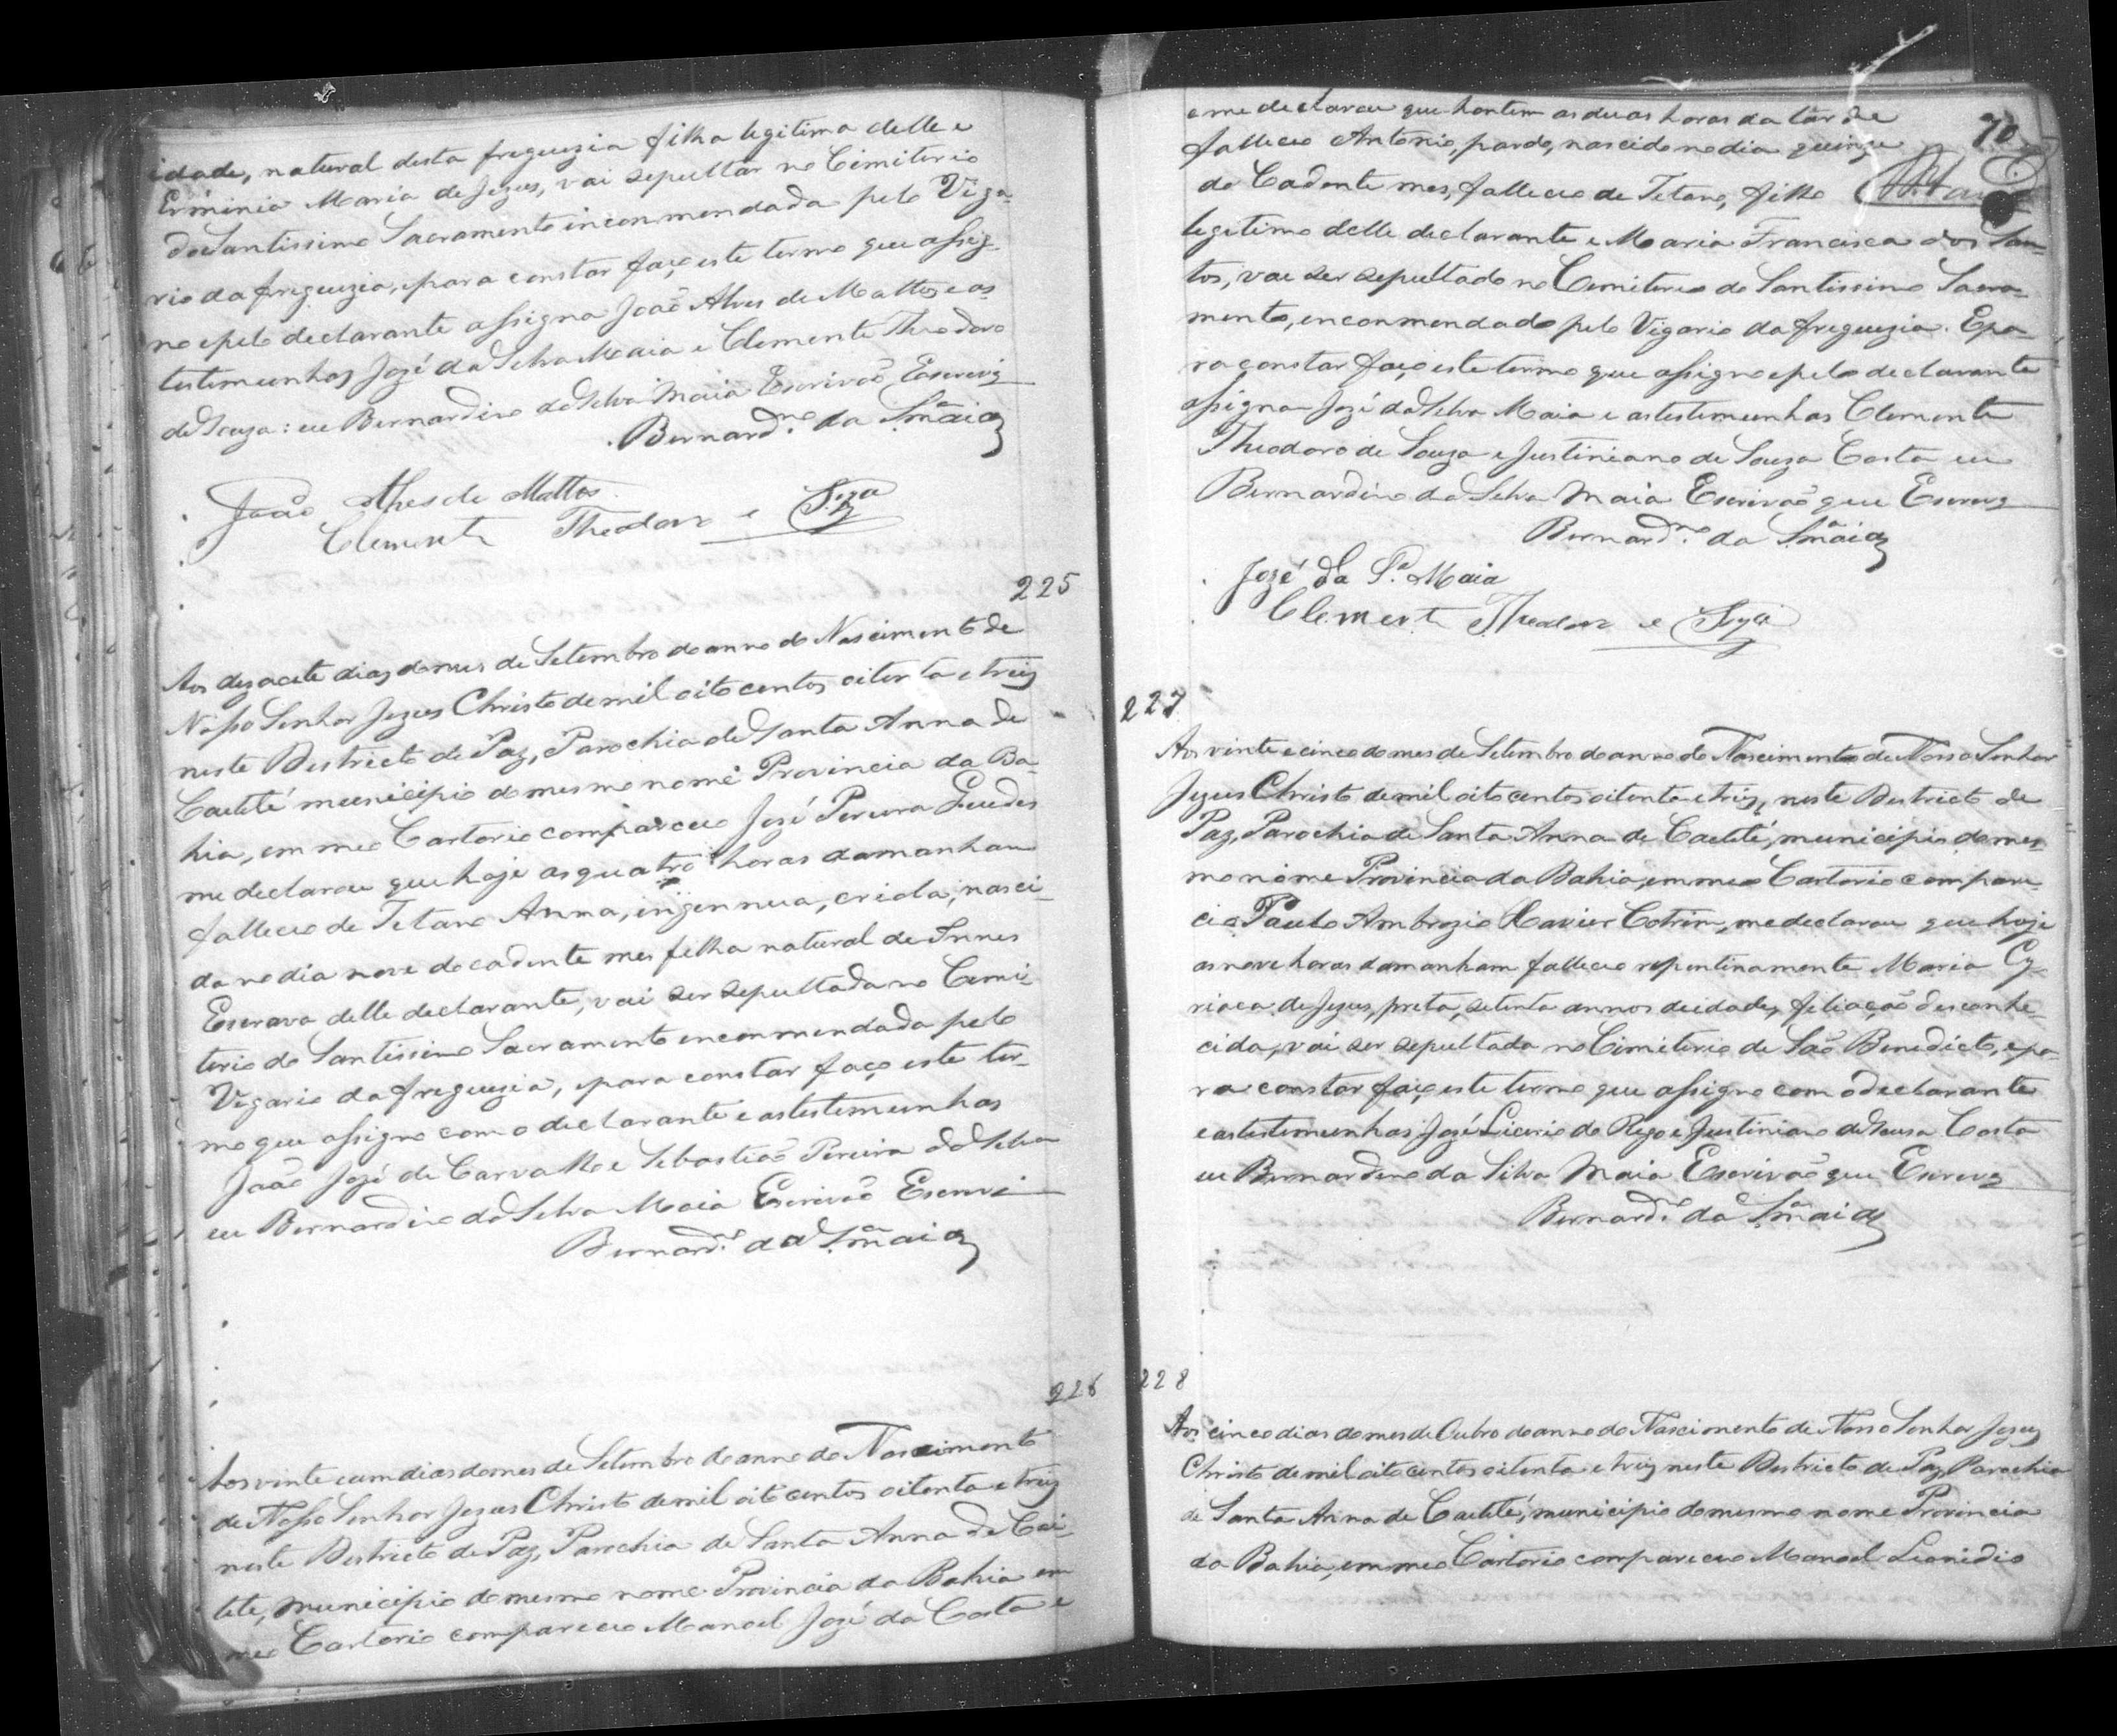 idade, natural desta freguezia filha legitima delle e
Erminia Maria de Jezus, vai sepultar no Cimiterio
do Santissimo Sacramento inconmendada pelo Viga-
rio da freguezia, e para constar faço este termo que assig-
no e pelo declarante assigna João Alves de Mattos e as
testemunhas José da Silva Maia e Clemente Theodoro
de Souza: eu Bernardino da Silva Maia Escrivaõ Escrevi
Bernard.no da S.a Maia
João Alves de Mattos
Clemente Theodoro e Sza
225
Aos desacete dias do mes de Setembro do anno do Nascimento de
Nosso Senhor Jezus Christo de mil oito centos oitenta e treiz
neste Destricto de Paz, Parochia de Santa Anna de
Caetité municipio do mesmo nome Provincia da Ba-
hia, em meo Cartorio compareceo José Pereira Guedes
me declarou que hoje as quatro horas da manham
falleceo de Tetano Anna, ingennua, criola, nasci-
da no dia nove do cadente mes filha natural de Innes
Escrava delle declarante, vai ser sepultada no Cemi-
terio do Santissimo Sacramento enconmendada pelo
Vigario da freguezia, e para constar faço este ter-
mo que assigno com o declarante e as testemunhas
João José de Carvalho e Sebastião Pereira da Silva
eu Bernardino da Silva Maia Escrivaõ Escrevi
Bernard.no da S.a Maia
226
Aos vinte e um dias do mes de Setembro do anno do Nascimento
de Nosso Senhor Jezus Christo de mil oito centos oitenta e treiz
neste Destricto de Paz, Parochia de Santa Anna de Cai-
tete, municipio do mesmo nome Provincia da Bahia em
meo Cartorio compareceo Manoel José da Costa e
70
e me declarou que hontem as duas horas da tarde
falleceo Antonio, pardo, nascido no dia quinze
do Cadente mes, falleceo de Tetano, filho
legitimo delle declarante e Maria Francisca dos San-
tos, vae ser sepultado no Cemiterio do Santissimo Sacra-
mento, enconmendado pelo Vigario da freguezia. E pa-
ra constar faço este termo que assigno e pelo declarante
assigna José da Silva Maia e as testemunhas Clemente
Theodoro de Souza e Justiniano de Souza Costa eu
Bernardino da Silva Maia Escrivaõ que Escrevy
Bernard.no da S.a Maia
Jozé da S.a Maia
Clemente Theodoro e Sza
227
Aos vinte e cinco do mes de Setembro do anno do Nascimento de Nosso Senhor
Jezus Christo de mil oito centos oitenta e treiz, neste Destricto de
Paz, Parochia de Santa Anna de Caetité, municipio do mes-
mo nome Provincia da Bahia, em meo Cartorio compare-
ceo Paulo Ambrozio Xavier Cotrim, me declarou que hoje
as nove horas da manham falleceo repentinamente Maria Cy-
riaca de Jezus, preta, setenta annos de idade, filiação desconhe-
cida, vai ser sepultada no Cimiterio de São Benedicto, e pa-
ra constar faço este termo que assigno com o declarante
e as testemunhas José Licerio do Rego e Justiniano de Sousa Costa
eu Bernardino da Silva Maia Escrivaõ que Escrevy
Bernard.no da S.a Maia
228
Aos cinco dias do mes de Outubro do anno do Nascimento de Nosso Senhor Jezus
Christo de mil oito centos oitenta e treiz neste Destricto de Paz, Parochia
de Santa Anna de Caetité, municipio do mesmo nome Provincia
da Bahia, em meo Cartorio compareceo Manoel Leonidio